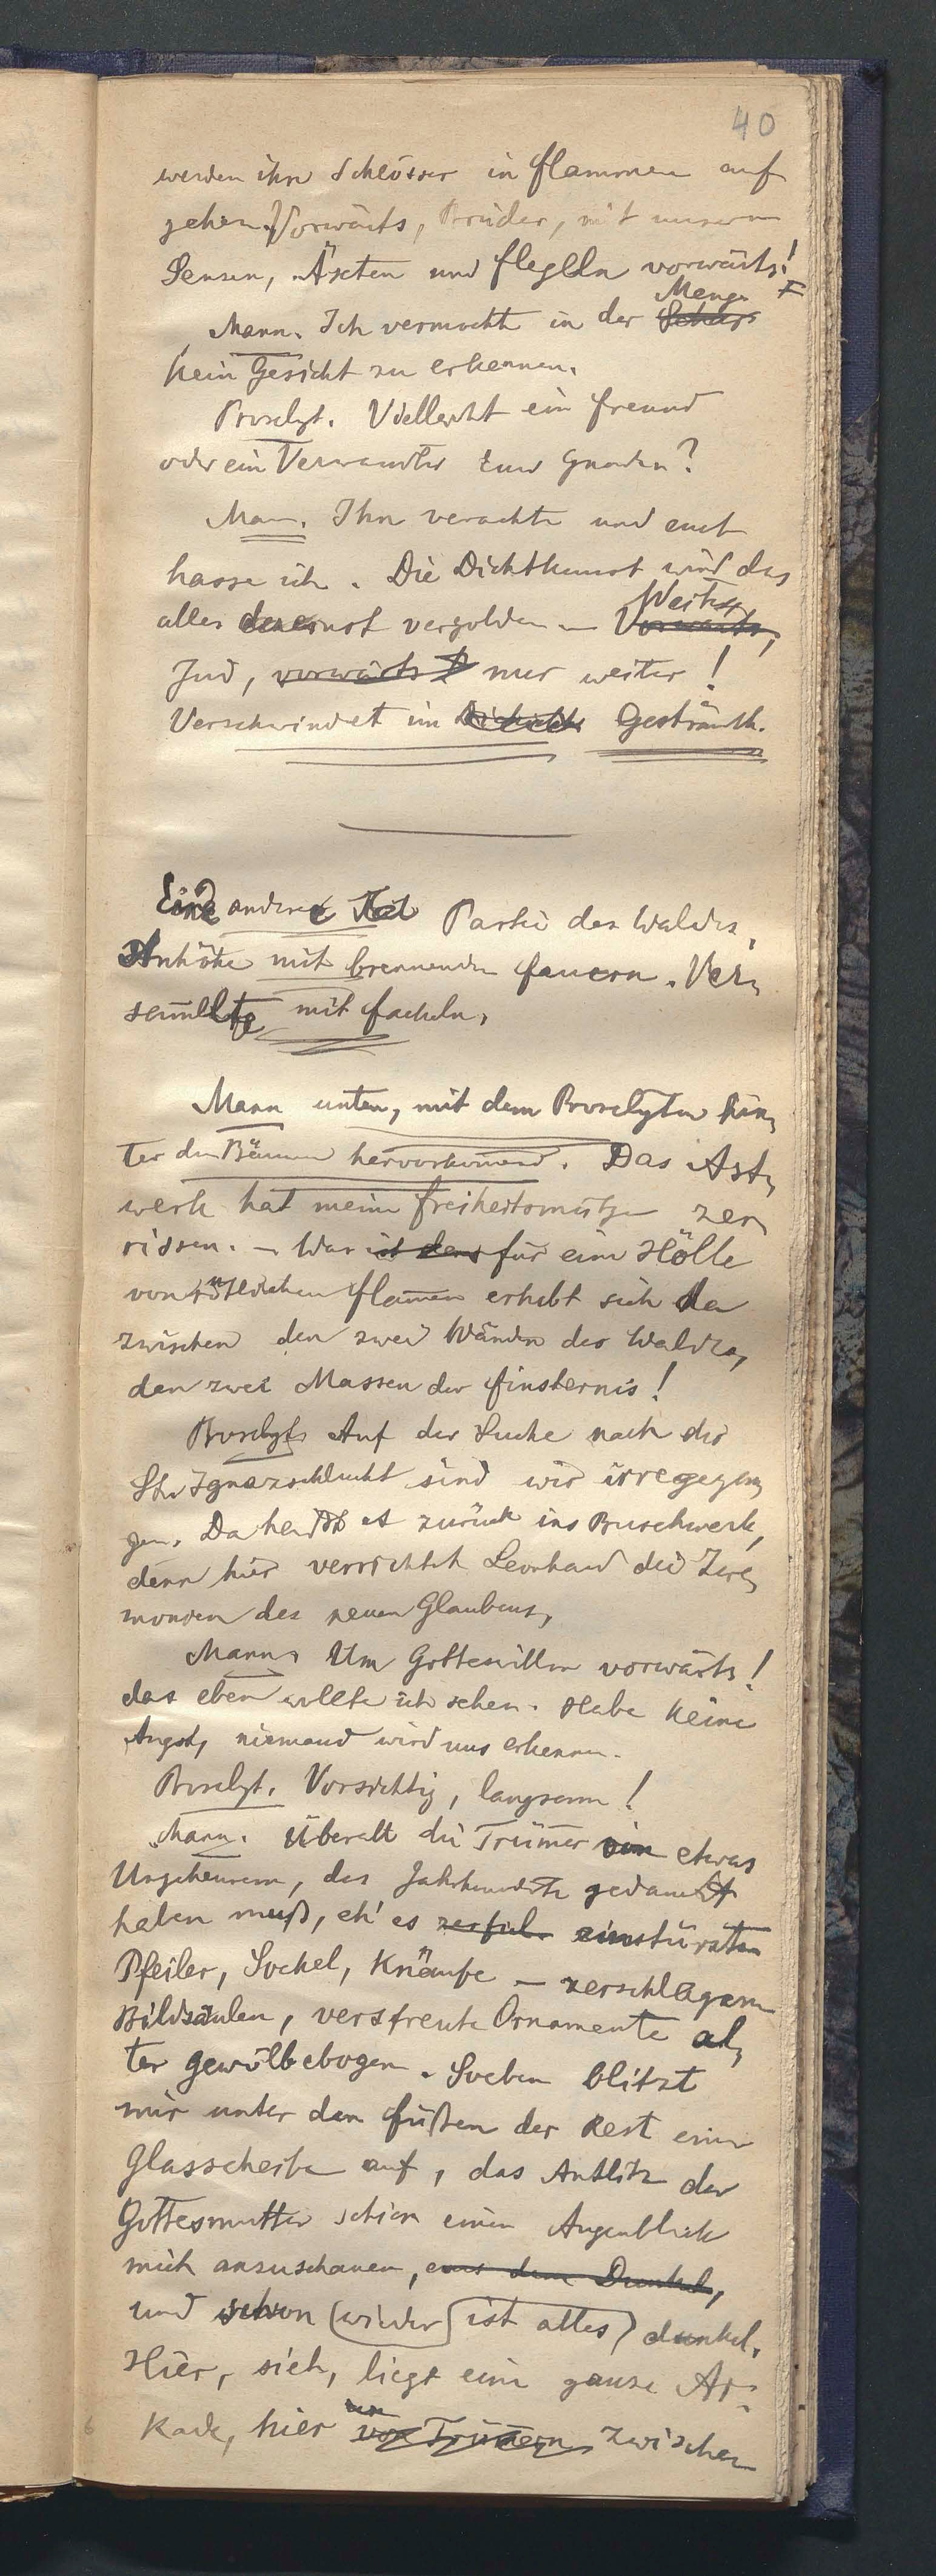 40
werden ihre Schlösser in Flammen auf
gehen. Vorwärts, Brüder, mit unseren
Sensen, Äxten und Flegeln vorwärts!
Menge
Mann. Ich vermochte in der Schar
kein Gesicht zu erkennen.
Proselyt. Vielleicht ein Freund
oder ein Verwandter Euer Gnaden?
Mann. Ihn verachte und euch
hasse ich. Die Dichtkunst wird das
Weiter,
alles dereinst vergolden – Vorwärts,
Jud, vorwärts! nur weiter!
Verschwindet im Dickicht Gesträuch.
Eine andere Partie des Waldes,
Anhöhe mit brennenden Feuern. Ver=
sam̅elte mit Fackeln.
Mann unten, mit dem Proselyten hin=
ter den Bäumen hervorkom̅end. Das Ast=
werk hat meine Freiheitsmütze zer
rissen. – Was ist denn für eine Hölle
von rötlichen Flam̅en erhebt sich da
zwischen den zwei Wänden des Waldes,
den zwei Massen der Finsternis!
Proselyt. Auf der Suche nach der
St. Ignazschlucht sind wir irregegan=
gen. Da heißt es zurück ins Buschwerk,
denn hier verrichtet Leonhard die Zere=
monien des neuen Glaubens.
Mann. Um Gotteswillen vorwärts!
das eben wollte ich sehen. Habe keine
Angst, niemand wird uns erkennen.
Proselyt. Vorsichtig, langsam!
Mann. Überall die Trüm̅er von etwas
Ungeheurem, das Jahrhunderte gedauert
haben muß, eh' es zerfiel einstürzte
Pfeiler, Sockel, Knäufe – zerschlagene
Bildsäulen, verstreute Ornamente al=
ter Gewölbebogen. Soeben blitzt
mir unter den Füßen der Rest einer
Glasscheibe auf, das Antlitz der
Gottesmutter schien einen Augenblick
mich anzuschauen, aus dem Dunkel,
und schon (wieder) ist alles) dunkel.
Hier, sieh, liegt eine ganze Ar=
kade, hier von Trüm̅ern zwischen
6